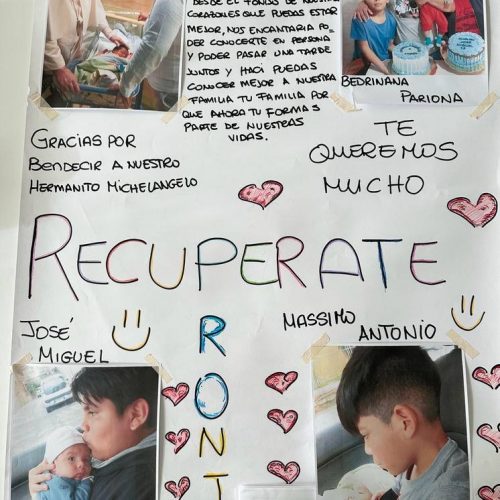 DESDE EL FONDO DE NUESTROS
CORAZONES QUE PUEDAS ESTAR
MEJOR, NOS ENCANTARIA PO-
DER CONOCERTE EN PERSONA
Y PODER PASAR UNA TARDE
JUNTOS Y HACI PUEDAS
CONOCER MEJOR A NUESTRA
FAMILIA TU FAMILIA POR
QUE AHORA TU FORMAS
PARTE DE NUESTRAS
VIDAS.
BEDRINANA
PARIONA
GRACIAS POR
BENDECIR A NUESTRO
HERMANITO MICHELANGELO
TE
QUEREMOS
MUCHO
RECUPERATE
JOSÉ
MIGUEL
MASSIMO
ANTONIO
PRONT